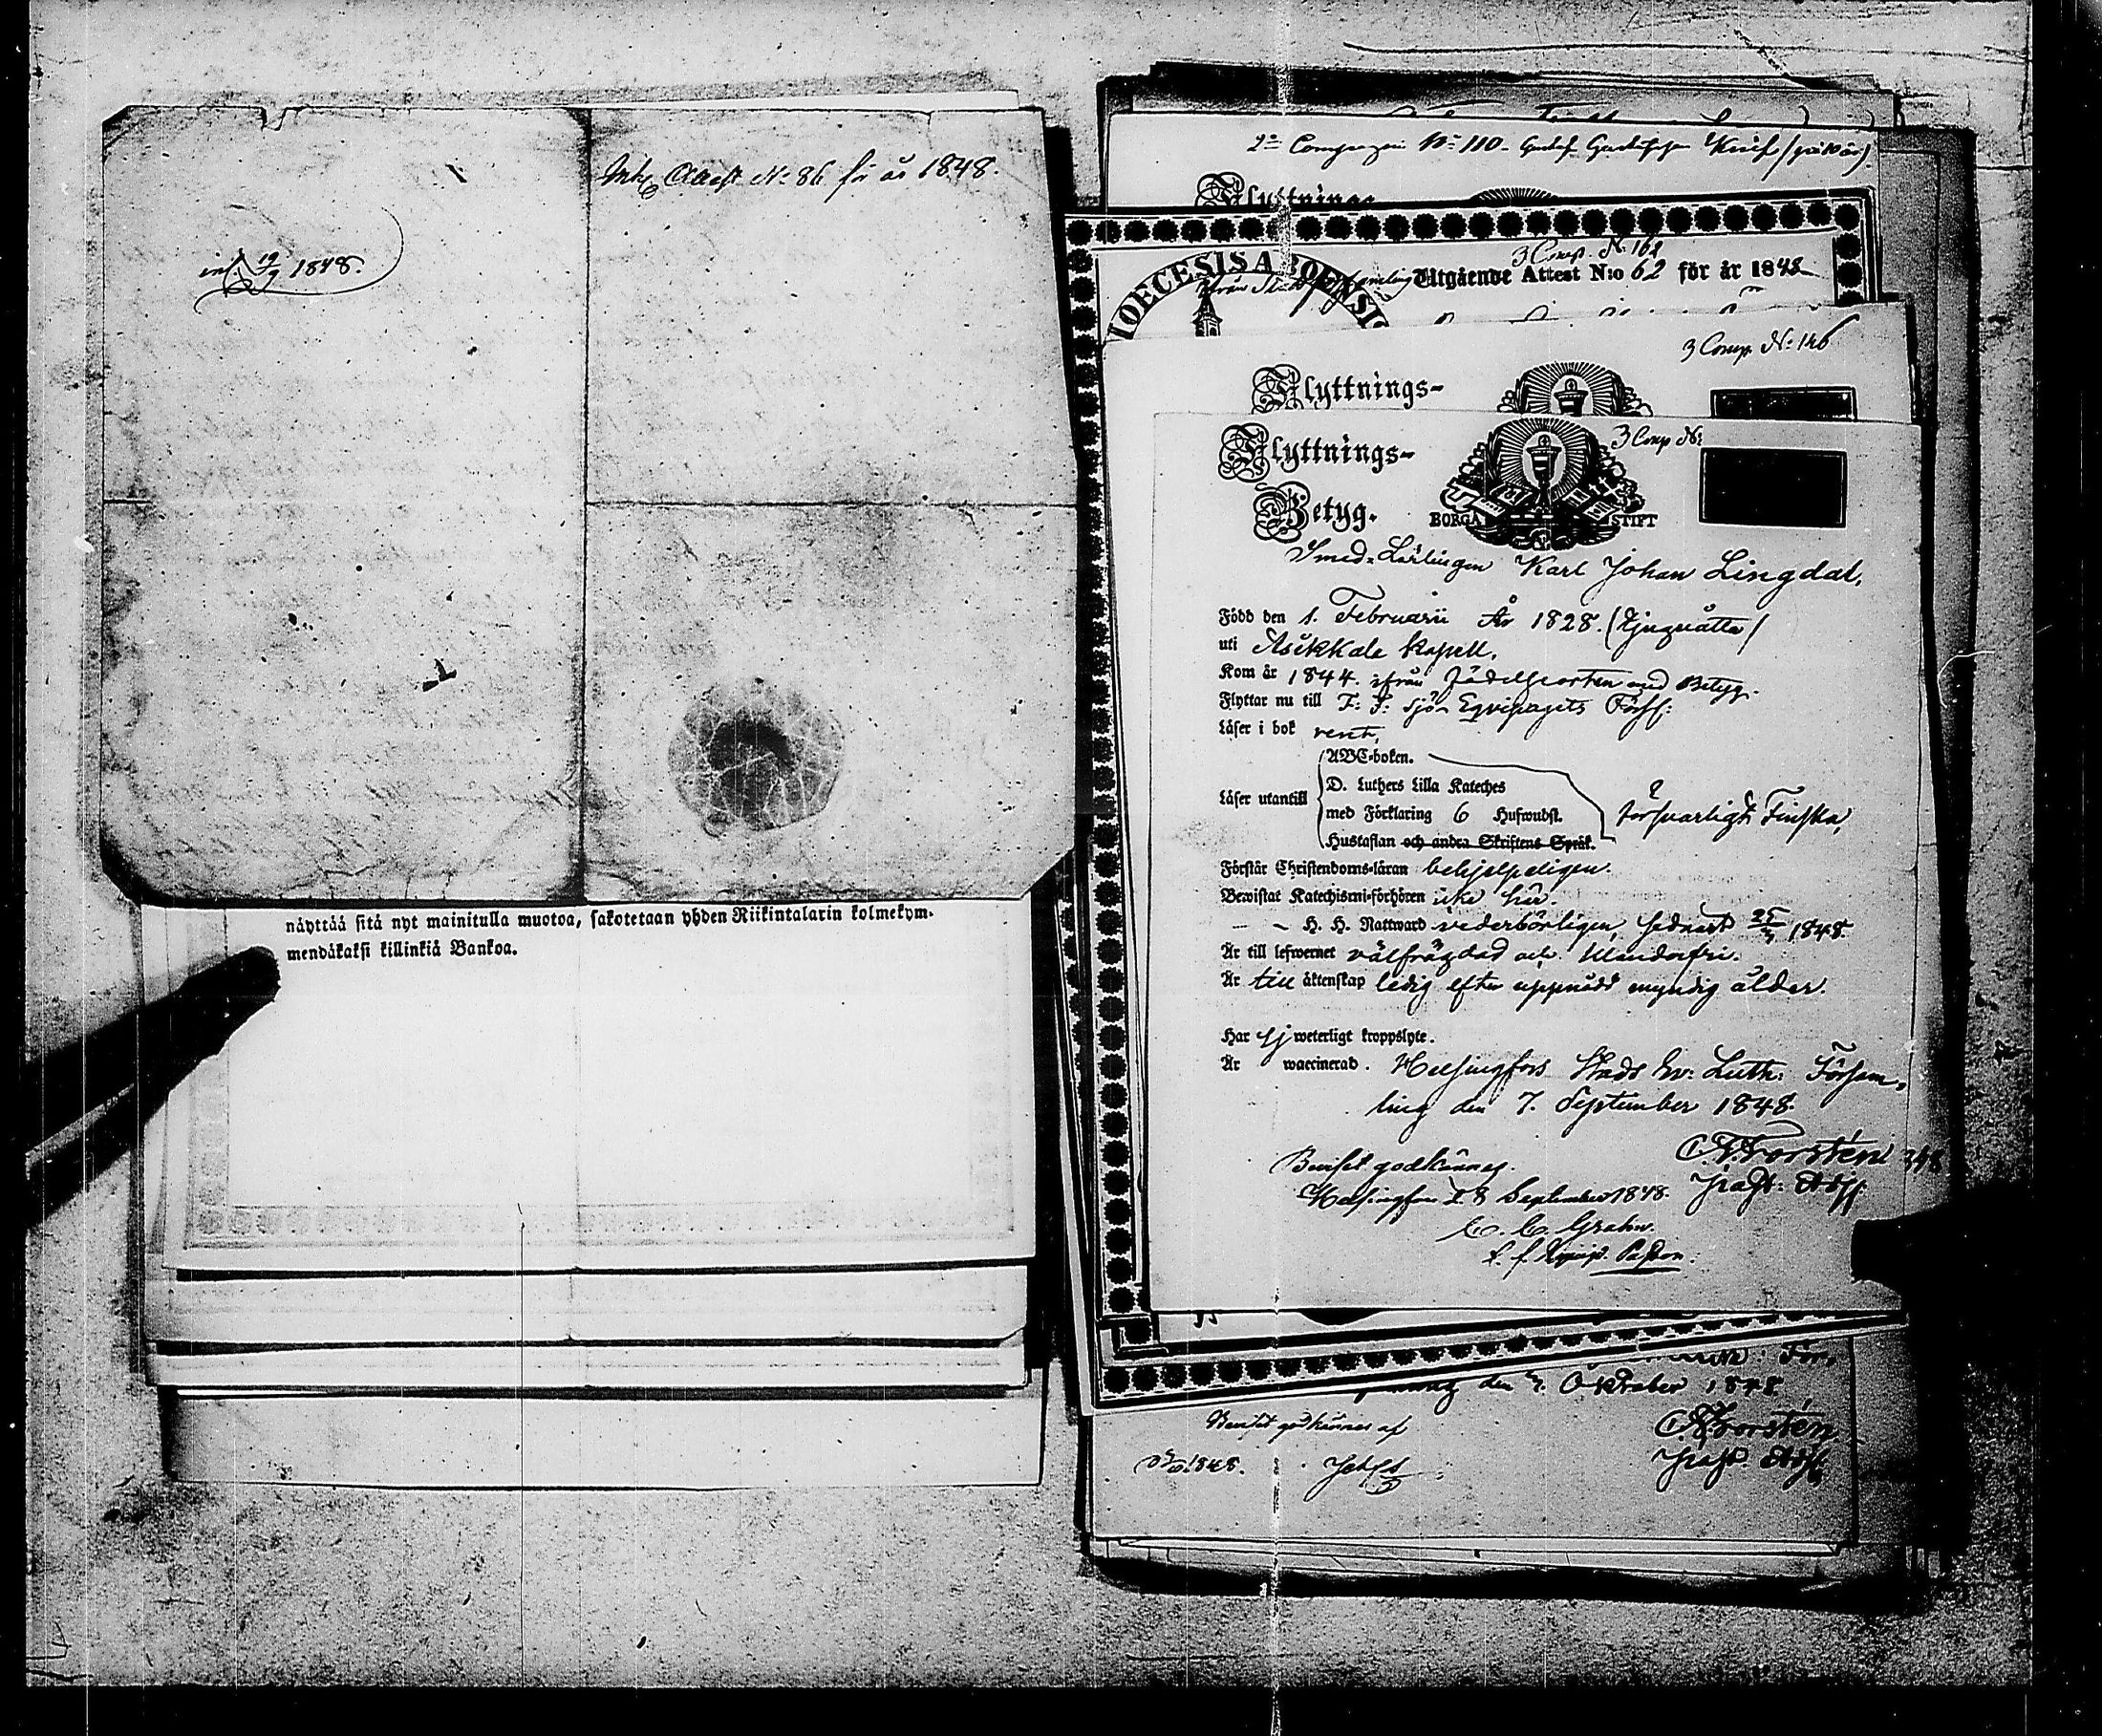 Ink. Attest No 86 för år 1848.
inl. 19/9 1848.
näyttää sitä nyt mainitulla muotoa, sakotetaan yhden Riikintalarin kolmekym-
mendäkaksi killinkiä Bankoa.
2:a Compagni No 110. Gustaf
Flyttnings
3 Comp. No 162
DIOECESIS ABOENSIS
Utgående Attest N:o 62 för år 1848
3 Comp. No 146
Flyttnings-
3 Comp No
Flyttnings-
Betyg.
BORGÅ STIFT
Smed-Lärlingen Karl Johan Lingdal,
Född den 1. Februarii År 1828. (Tjuguåtta)
uti Asikkala kapell.
Kom år 1844. ifrån födelseorten med Betyg.
Flyttar nu till F: F: Sjö-Eqvipagets Förs:
Läser i bok rent,
ABC-boken.
D. Luthers Lilla Kateches
Läser utantill
med Förklaring 6 Hufwudst.
försvarligt Finska,
Hustaflan och andra Skriftens Språk.
Förstår Christendoms-läran behjelpeligen.
Bewistat Katechismi-förhören icke här.
— H. H. Nattward vederbörligen, sednast 25/3 1848.
Är till lefwernet välfrägdad och
Är till äktenskap ledig efter uppnådd myndig ålder.
Har ej weterligt kroppslyte.
Är waccinerad. Helsingfors Stads Ev: Luth: Försam-
ling den 7. September 1848.
C. Forstén
Beviset godkännes.
Helsingfors d. 8 September 1848.
C. C. Grahn.
Past
den 3. Oktober 1848
Beviset godkännes af
C. Forstén
1848.